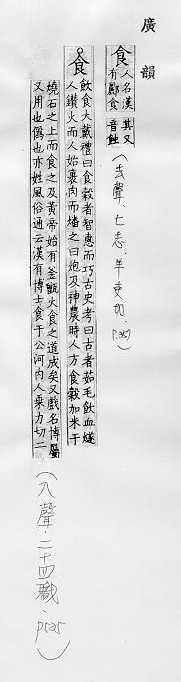 廣韻
食 人名漢有酈食其又音蝕
(去聲.七志.羊吏切.P.357)
食 飲食大戴禮曰食穀者智惠而巧古史考曰古者茹毛飲血燧
人鑽火而人始裹肉而燔之曰炮及神農時人方食穀加米于
燒石之上而食之及黃帝始有釜甑火食之道成矣又戲名博屬
又用也僞也亦姓風俗通云漢有博士食子公河內人乘力切二
(入聲.二十四職.P525)